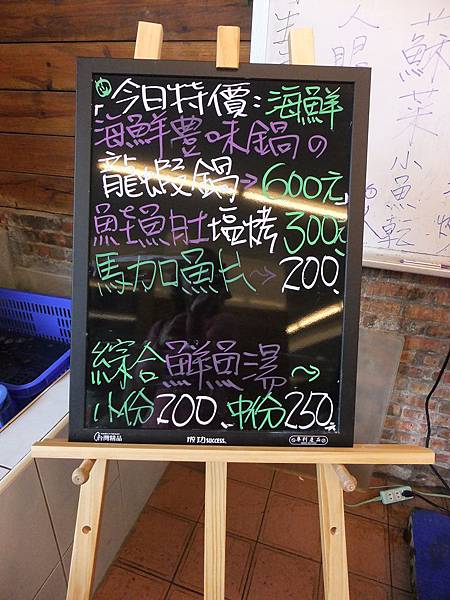 「今日特價:海鮮
海鮮豊味鍋の
龍蝦鍋→600元」
鮭魚肚塩烤300元
馬加魚片~200、
綜合鮮魚湯~
小份200、中份250、
台灣精品
成功SUCCESS.
專利產品
蘇菜小魚乾